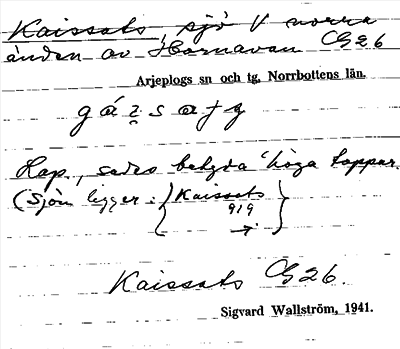 Kaissats, sjö V norra
änden av Hornavan C26
Arjeplogs sn och tg, Norrbottens län.
Lap., sades betyda "höga toppar.
(Sjön ligger i Kaissats
919
Kaissats C26.
Sigvard Wallström, 1941.